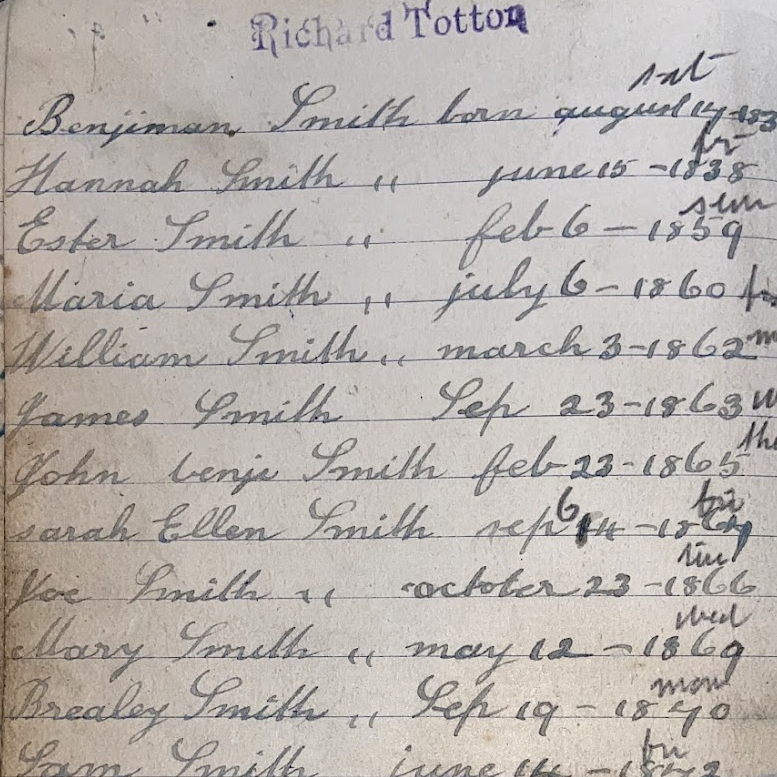 Richard Totton
sat
Benjiman Smith born august 14-183
fri
Hannah Smith " june 15-1838
sun
Ester Smith " feb 6-1859
Maria Smith " july 6-1860
William Smith " march 3-1862
James Smith Sep 23-1863
John benje Smith feb-23-1865
fri
sarah Ellen Smith sep 6
Joe Smith " october 23-1866
wed
Mary Smith " may 12-1869
mon
Brealey Smith " Sep 19-1870
fri
Sam Smith june 14